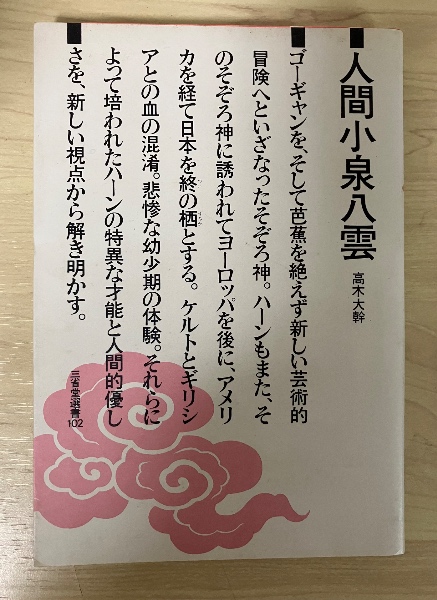 人間小泉八雲
高木大幹
ゴーギャンを、そして芭蕉を絶えず新しい芸術的
冒険へといざなったそぞろ神。ハーンもまた、そ
のそぞろ神に誘われてヨーロッパを後に、アメリ
カを経て日本を終の栖とする。ケルトとギリシ
アとの血の混淆。悲惨な幼少期の体験。それらに
よって培われたハーンの特異な才能と人間的優し
さを、新しい視点から解き明かす。
三省堂選書102